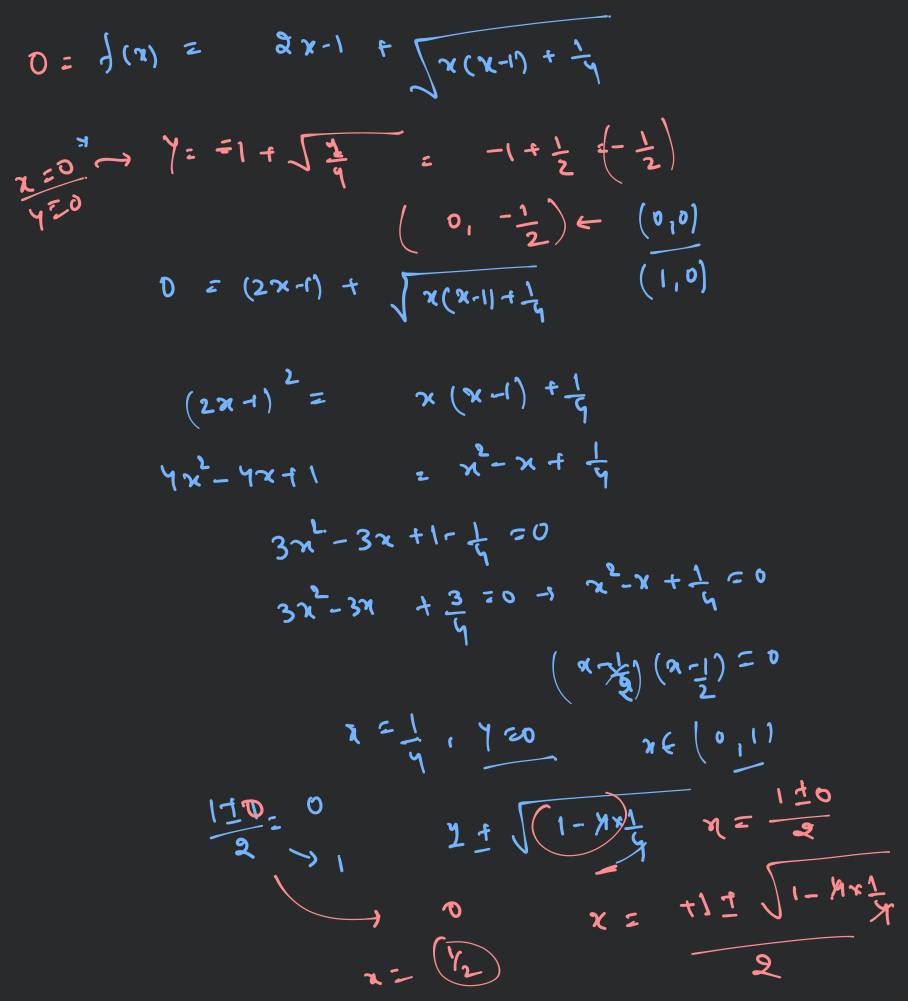 0 = f(x) = 2x-1 + √(x(x-1) + 1/4)
x=0 → y = -1 + √(1/4) = -1 + 1/2 (= -1/2)
y=0
(0, -1/2) ← (0,0)
(1,0)
0 = (2x-1) + √(x(x-1) + 1/4)
(2x-1)² = x(x-1) + 1/4
4x² - 4x + 1 = x² - x + 1/4
3x² - 3x + 1 - 1/4 = 0
3x² - 3x + 3/4 = 0 → x² - x + 1/4 = 0
(x - 1/2) (x - 1/2) = 0
x = 1/4, y = 0 x ∈ (0,1)
(1 ± 0)/2 = 0
→ 1
± √(1 - 4×1/4) x = (1 ± 0)/2
0 x = (+1 ± √(1 - 4×1/4))/2
x = 1/2